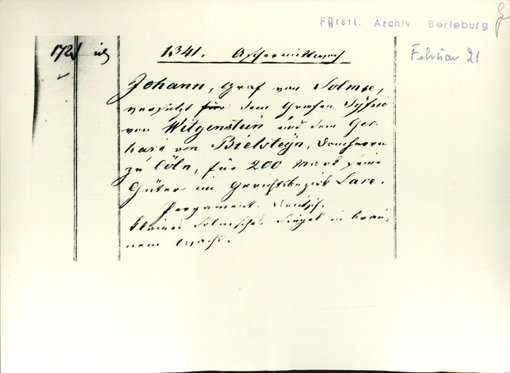 Fürstl. Archiv Berleburg
Februar 21
172
1341. Aschermittwoch
Johann, Graf von Solms,
versetzt für dem Grafen Syfrid
von Witgenstein und dem Ger-
hard von Bielsteyn, Domherrn
zu Cöln, für 200 Mark seine
Güter im Gerichtsbezirk Lare.
Pergament. Deutsch.
Kleines Solmsches Siegel in brau-
nem Wachs.